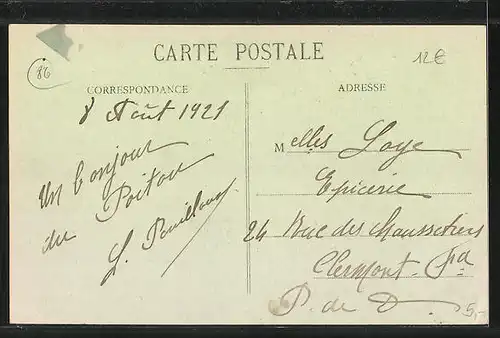 CARTE POSTALE
86
12€
CORRESPONDANCE
8 Août 1921
Un bonjour
du Poitou
ADRESSE
Melles Loye
Epicerie
24 Rue des Chaussetiers
Clermont-Fd
P. de D.
5,-